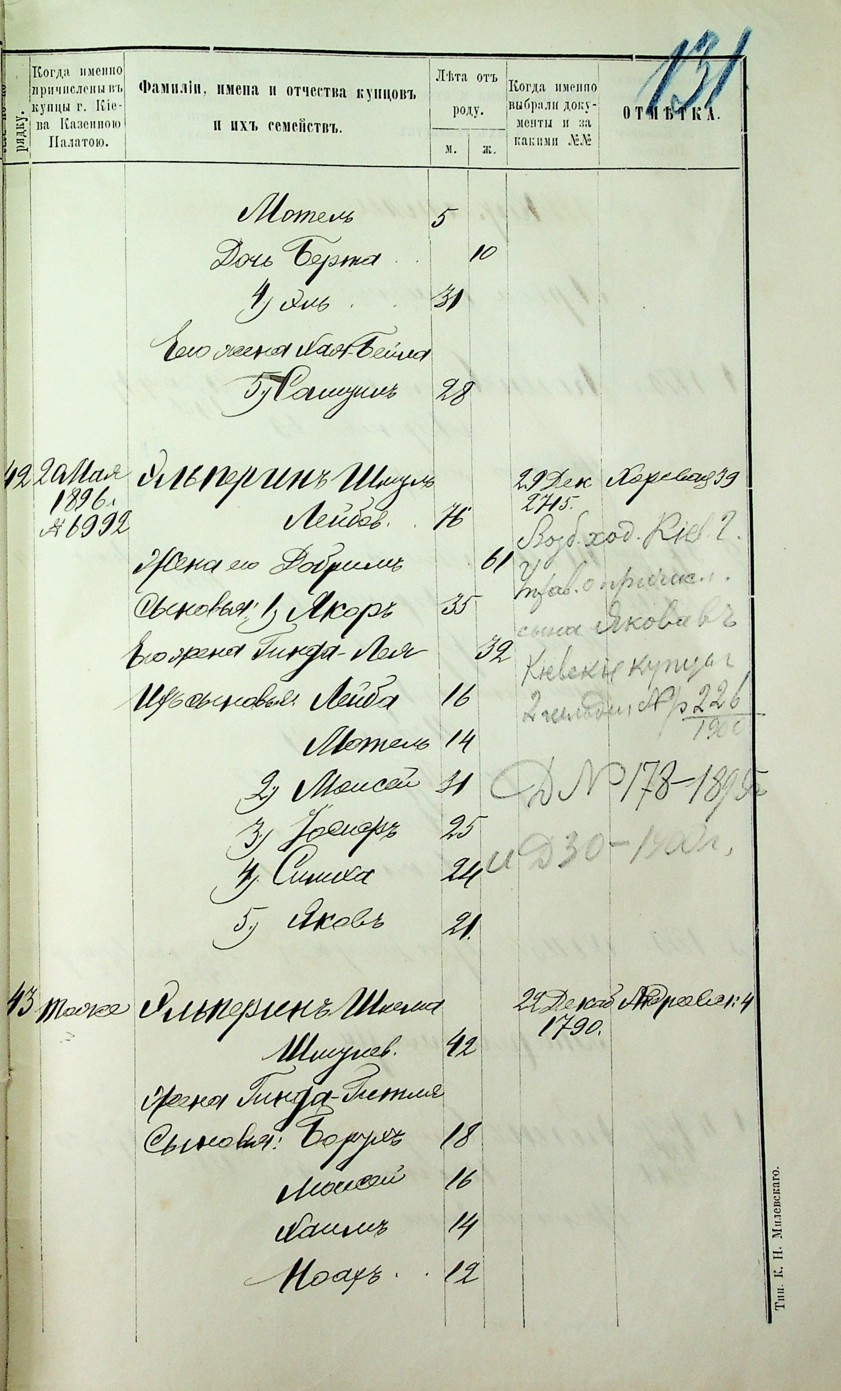 131
рядку.
Когда именно
причислены въ
купцы г. Кіе-
ва Казенною
Палатою.
Фамиліи, имена и отчества купцовъ
и ихъ семействъ.
Лѣта отъ
роду.
м. ж.
Когда именно
выбрали доку-
менты и за
какими №№
ОТМѢТКА.
Мотель 5
Дочь Берта 10
4) Эль 31
Его жена Хая-Бейла
5) Самуилъ 28
42 20 Мая Гальперинъ Шмуль 29 Дек Хоревая 39
1896 г. Лейбов. 76 2715.
№ 6992
Жена его Добришъ 61
Сыновья: 1) Якоръ 35
Его жена Гинда-Лея 32
Ихъ сыновья: Лейба 16
Мотель 14
2) Моисей 31
3) Іосифъ 25
4) Симха 24
5) Яковъ 21.
Возб. ход. Кіев. Г.
У
прав. о причисл.
сына Якова въ
Кіевскіе купцы
2 гильдіи № 226
1900
Д № 178-1895 г
и Д 30-1900 г,
43 тоже Гальперинъ Шлема 22 Декаб 4
Шмулев. 42 1790.
Жена Гинда-Гитля
Сыновья: Борухъ 18
Моисей 16
Хаимъ 14
Ноахъ 12
Тип. К. Н. Милевскаго.